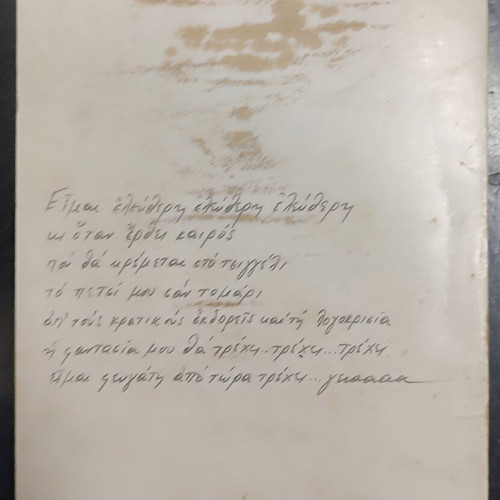 Εἶμαι ἐλεύθερη ἐλεύθερη ἐλεύθερη
κι ὅταν ἔρθει καιρός
πού θά κρέμεται στό τσιγγέλι
τό πετσί μου σάν τομάρι
ἀπ' τούς κρατικούς ἐκδορεῖς καί τή λογοκρισία
ἡ φαντασία μου θά τρέχει.. τρέχει... τρέχει
εἶμαι φευγάτη ἀπό τώρα τρέχει... γειαααα